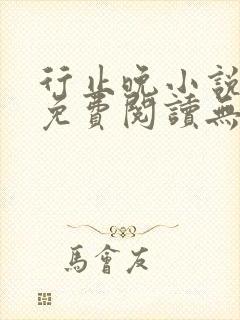 行止晚小說
免費閱讀無
馬會友